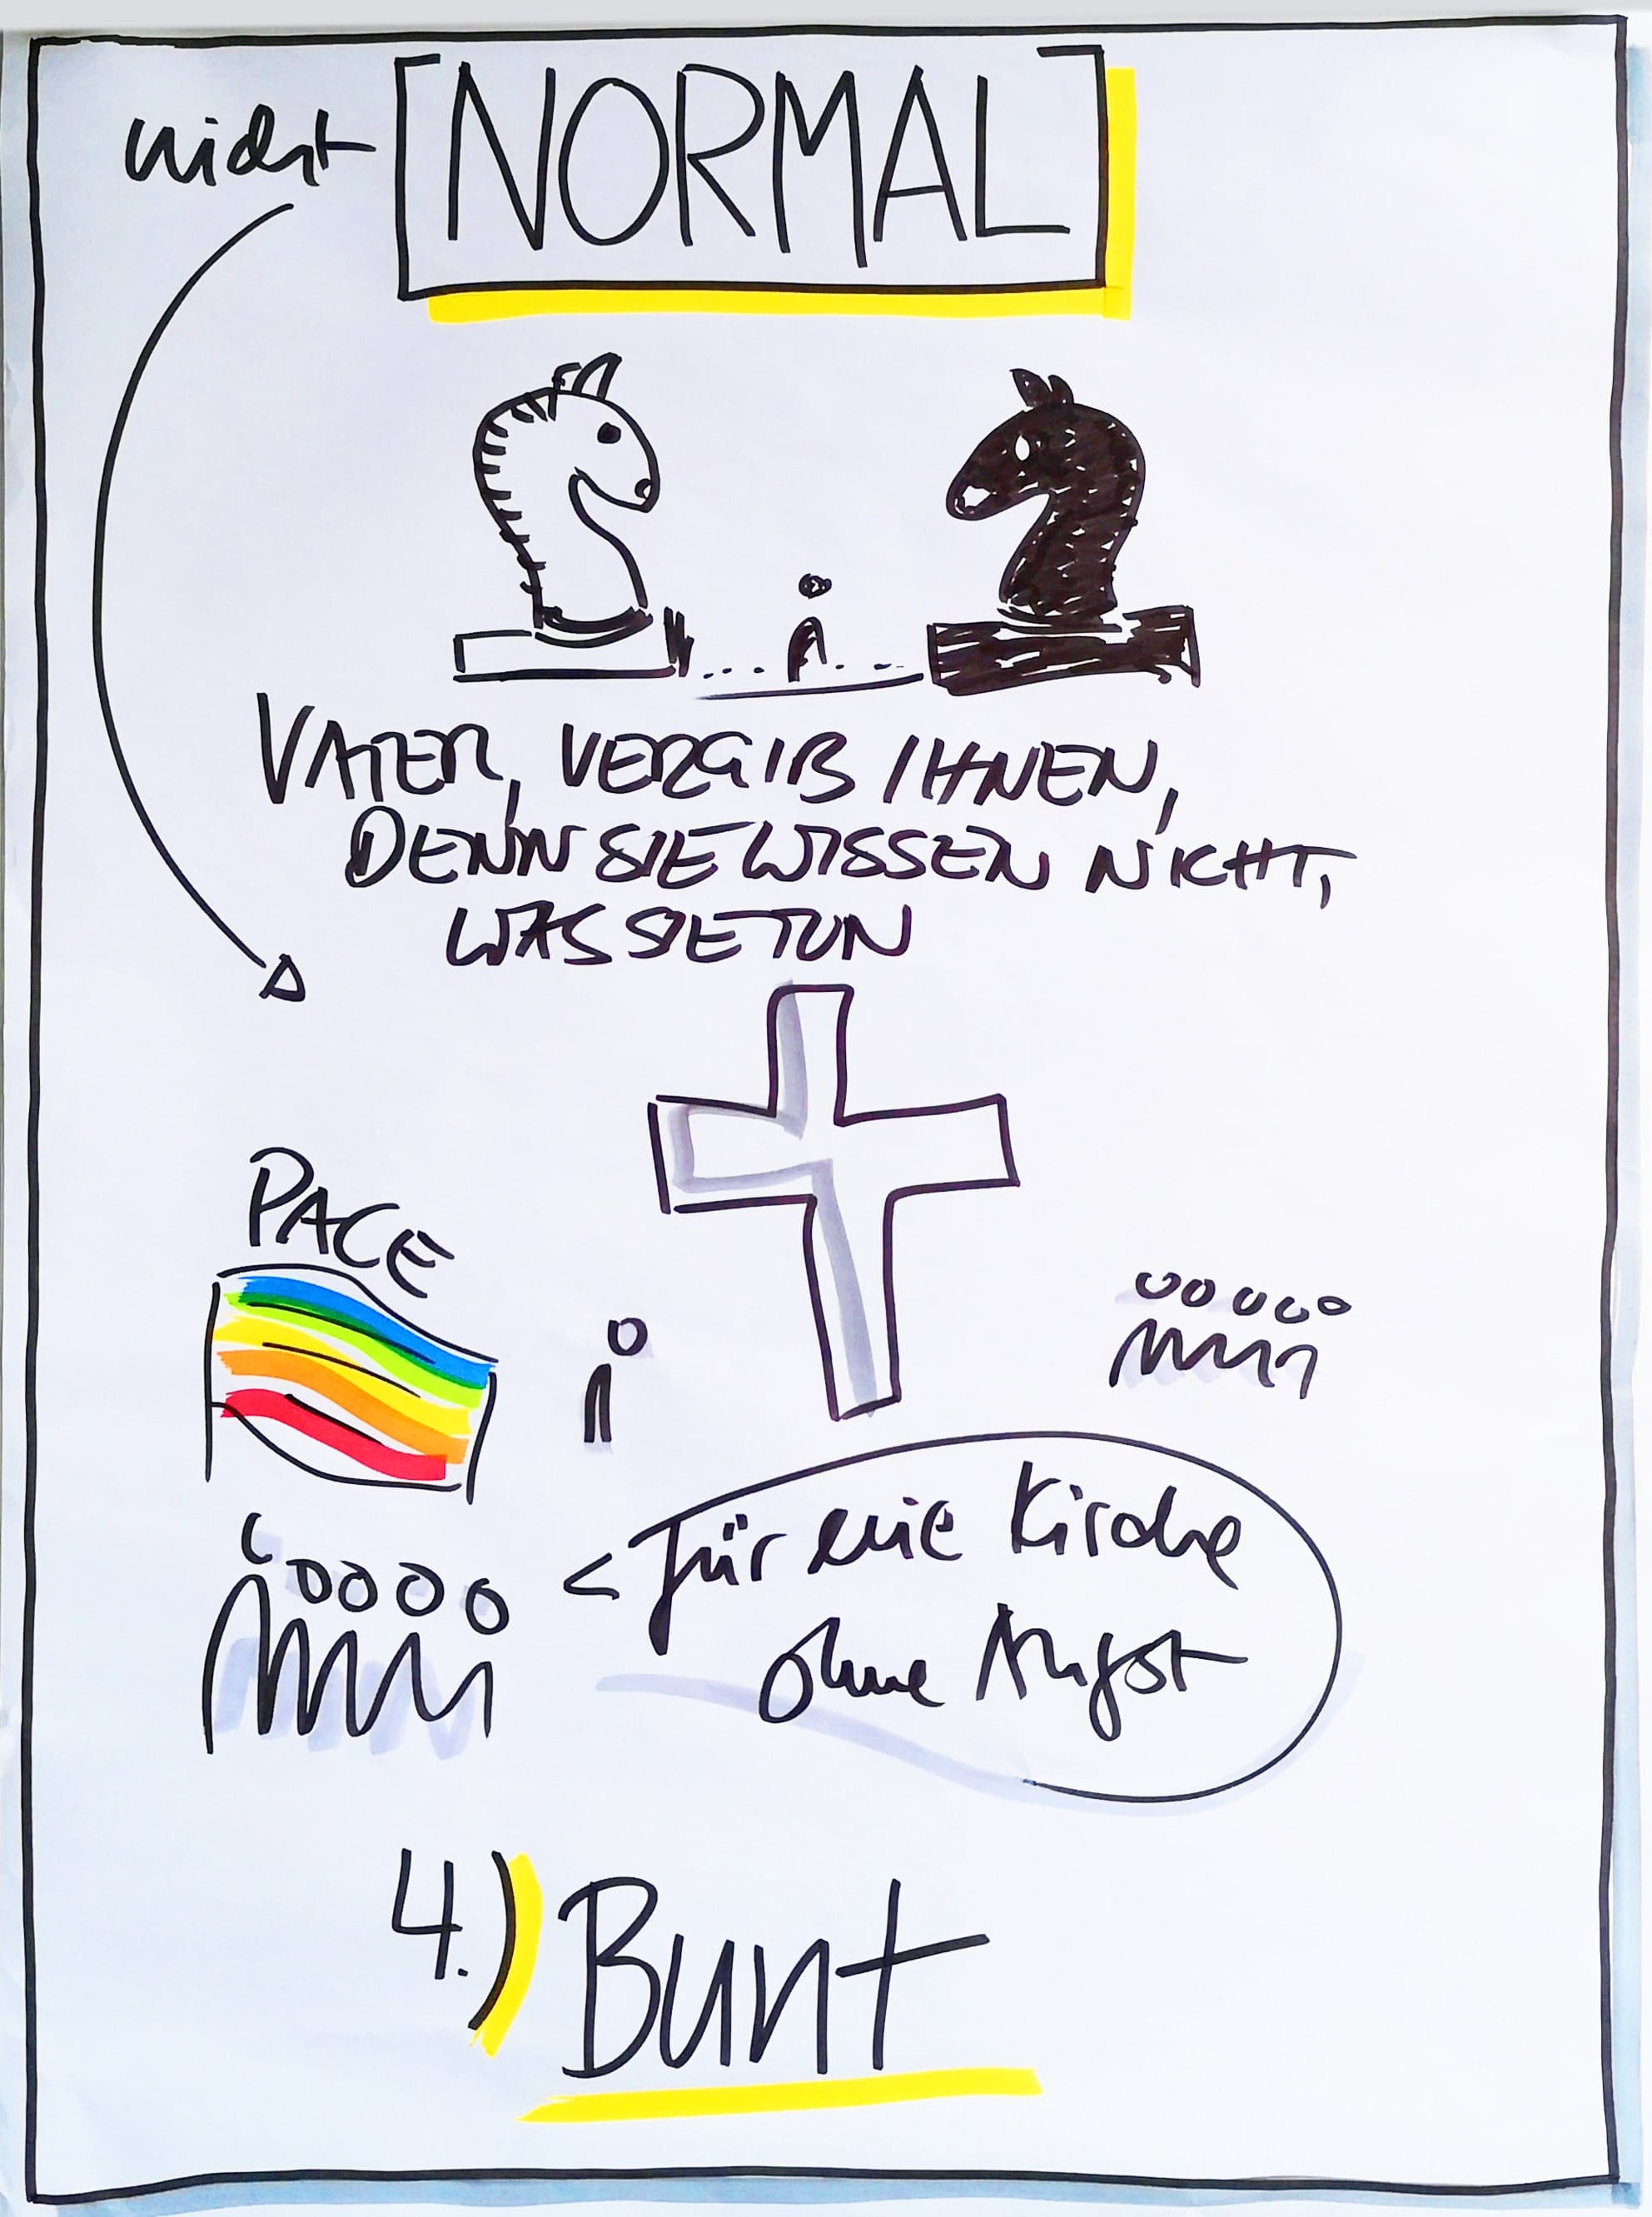 nicht [NORMAL]
VATER, VERGIB IHNEN,
DENN SIE WISSEN NICHT,
WAS SIE TUN
PACE
Für eine Kirche
ohne Angst
4.) Bunt